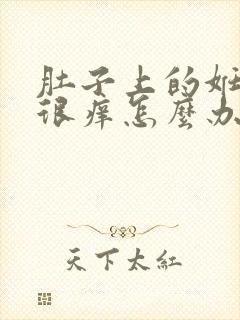 肚子上的妊
很痒怎麼办
天下太紅